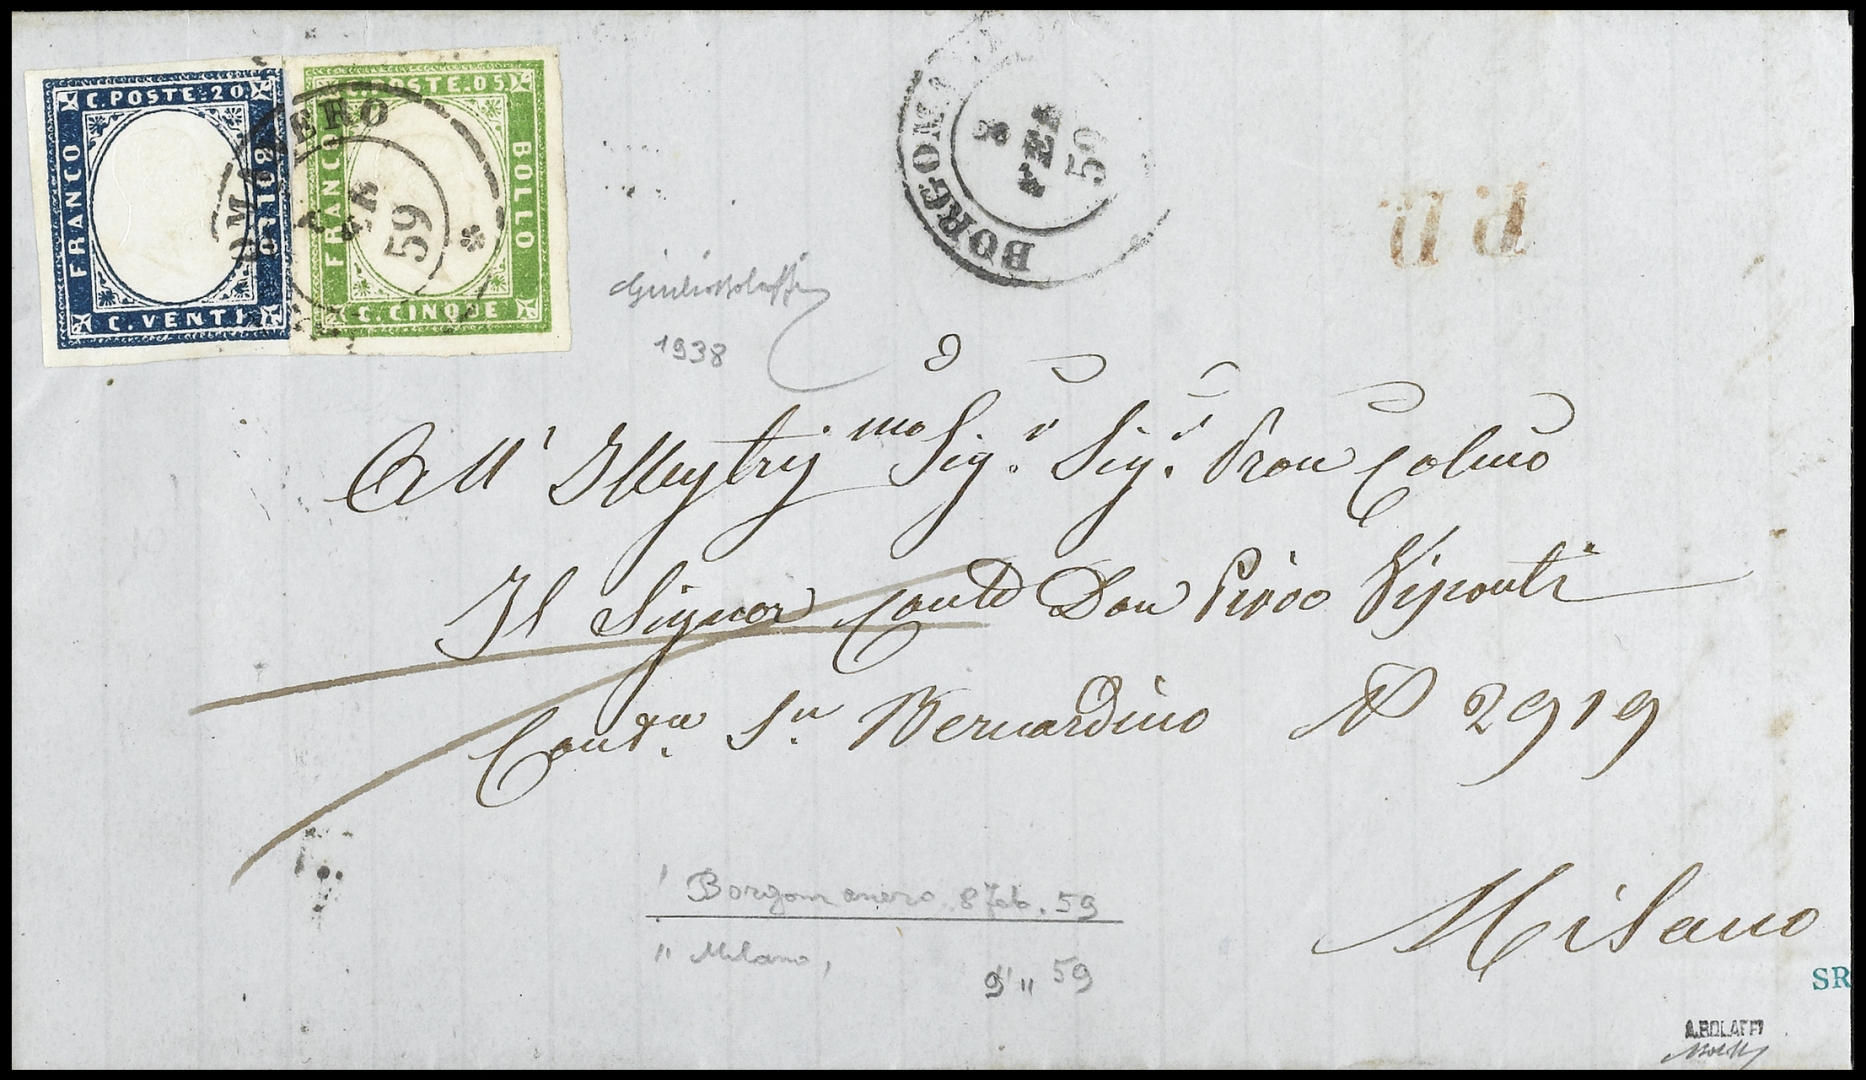 C. POSTE. 20.
FRANCO
BOLLO
C. VENTI
C. POSTE. 05.
FRANCO
BOLLO
C. CINQUE
OMANERO
FEB
59
BORGOMA
8
FEB
59
P. D.
1938
All' Illustriss.mo Sig.r Sig.r Pron Colmo
Il Signor Conte Don Pirro Visconti
Cont.a S.n Bernardino N 2919
Milano
Borgomanero 8 Feb. 59
" Milano, 9 " 59
SR
A. BOLAFFI